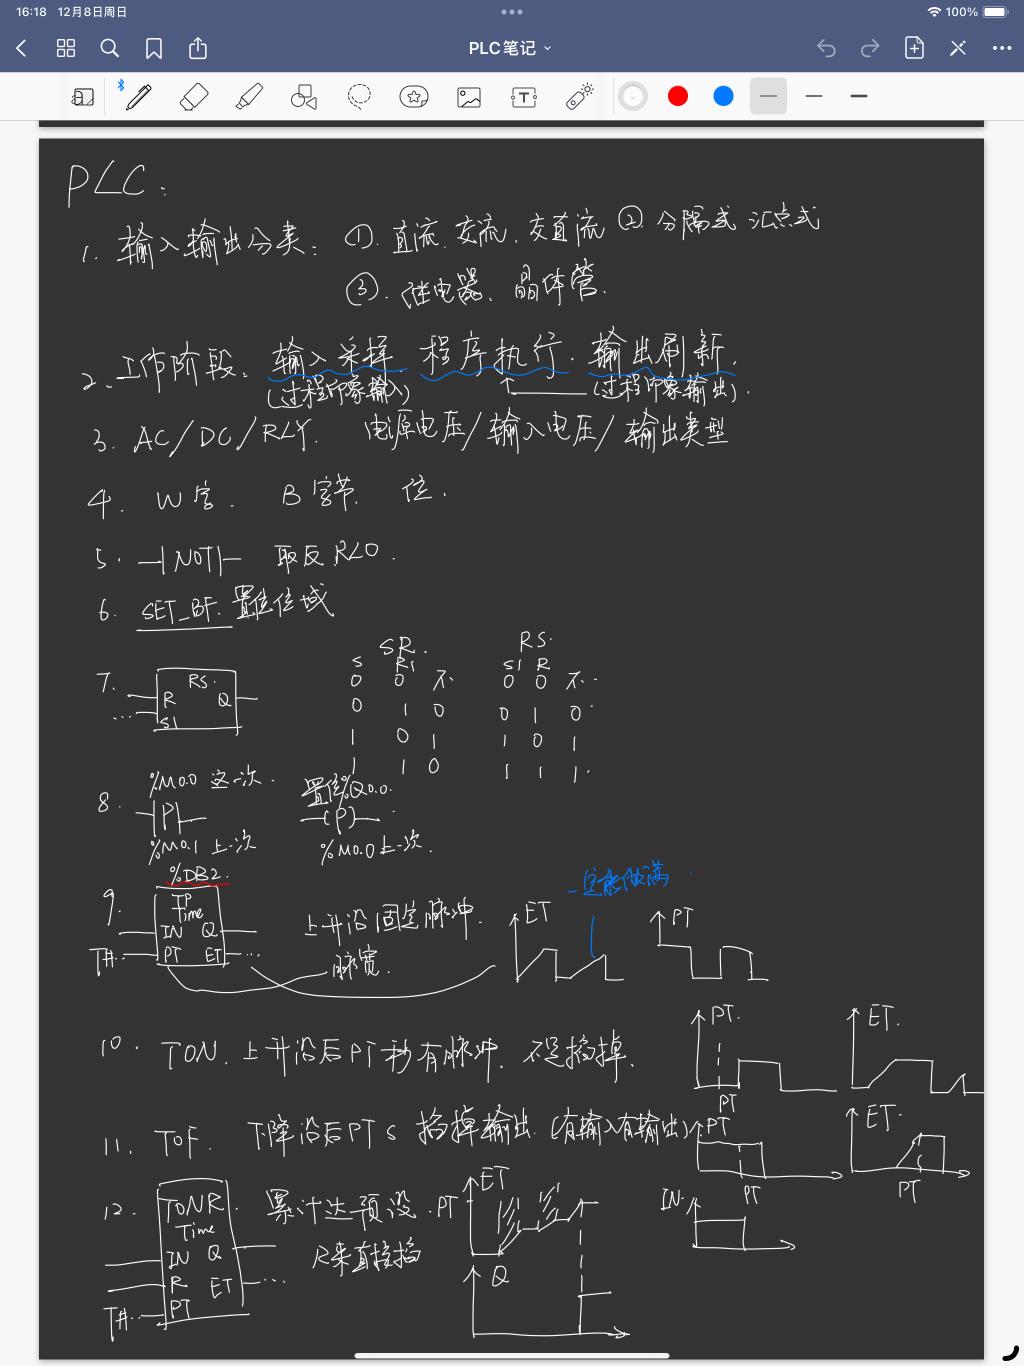 16:18 12月8日周日
100%
PLC笔记
PLC:
1. 输入输出分类: ①. 直流. 交流. 交直流 ② 分隔式 汇点式
③. 继电器、晶体管.
2. 工作阶段: 输入采择. 程序执行. 输出刷新.
(过程印象输入) (过程印象输出).
3. AC/DC/RLY. 电源电压/输入电压/输出类型
4. W字. B字节. 位.
5. NOT 取反RLO.
6. SET_BF. 置位位域
SR. RS.
S R1 S1 R
7. RS.
R Q
... S1
0 0 不. 0 0 不.
0 1 0 0 1 0
1 0 1 1 0 1
1 1 0 1 1 1.
8. %M0.0 这一次. 置位%Q0.0.
P (P)
%M0.1 上一次 %M0.0上一次.
%DB2.
9. TP
Time
IN Q
T#... PT ET ...
上升沿固定脉冲.
脉宽.
ET PT
一定能做满
10. TON. 上升沿后PT秒有脉冲. 不足掐掉.
PT. ET.
PT
11. TOF. 下降沿后PT s 掐掉输出. (有输入有输出)
PT ET.
PT PT
IN.
12. TONR
Time
IN Q
R ET ...
T#... PT
累计达预设. PT
R来直接掐
ET
Q